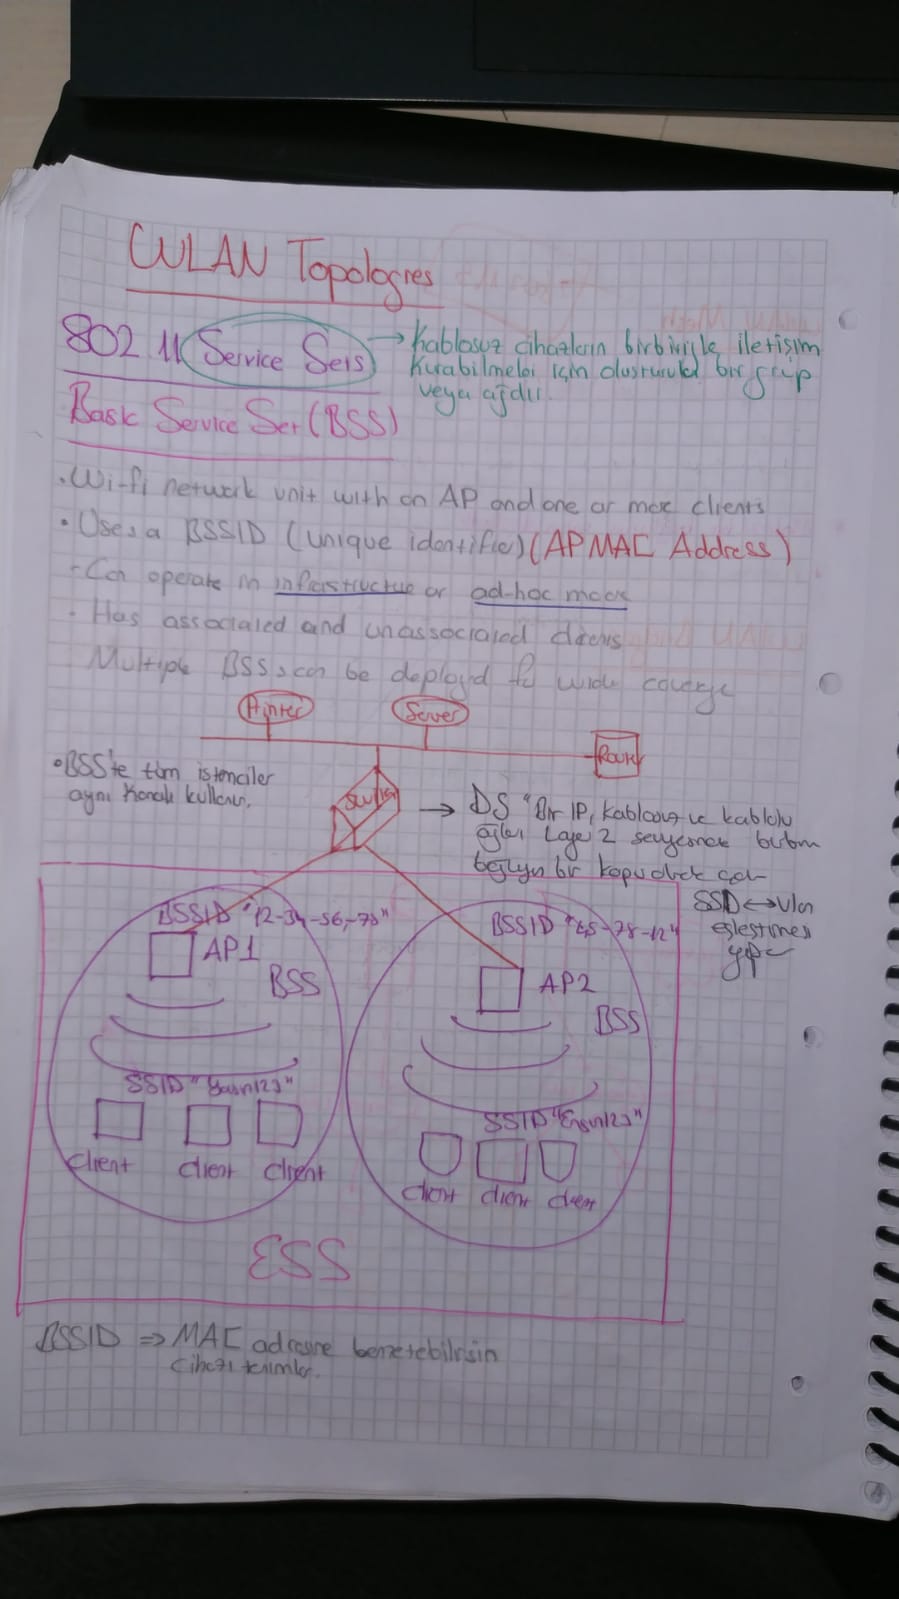 WLAN Topologies
802 11 Service Sets
→ Kablosuz cihazların birbiriyle iletişim
kurabilmeleri için oluşturulan bir grup
veya ağdır.
Basic Service Set (BSS)
. Wi-fi network unit with an AP and one or more clients
• Uses a BSSID (unique identifier) (AP MAC Address)
- Can operate in infrastructure or ad-hoc mode
• Has associated and unassociated clients
Multiple BSSs can be deployed for wide coverage
Printer
Server
Router
Switch
• BSS'te tüm istemciler
aynı kanalı kullanır.
→ DS "Bir IP, kablosuz ve kablolu
ağları Layer 2 seviyesinde
bir köprü
SSID ↔ Vlan
eşleştirmesi
yapar
BSSID "12-34-56-78"
AP1
BSS
SSID "Yasin123"
client client client
BSSID "45-78-12"
AP2
BSS
SSID "Ersin123"
client client client
ESS
BSSID ⇒ MAC adresine benzetebilirsin
Cihazı tanımlar.